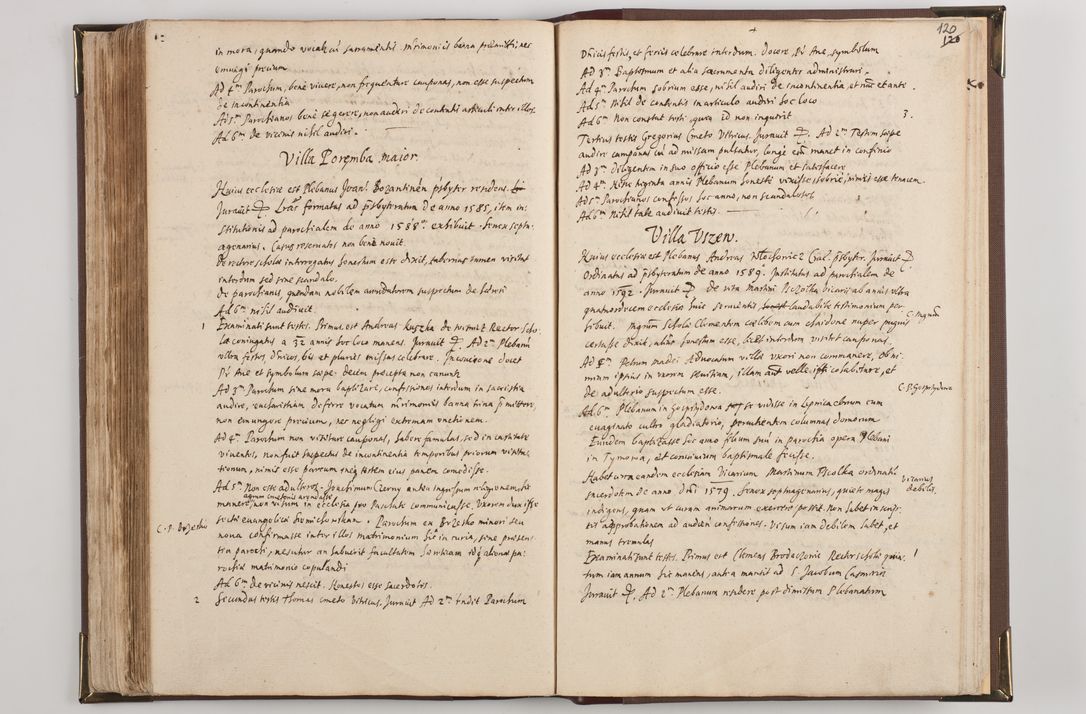 in mora, quando vocatus sacramenti. Mrimonii banna præmitti, nec
emungi precium
Ad 4m Parochum, bene vivere, non frequentare cauponas, non esse suspectum
de incontinentia
Ad 5m Parochianos bene se gerere, non audiri de contentis articuli inter illos.
Ad 6m de vicinis nihil audivi.
Villa Poremba maior.
Huius ecclesiæ est Plebanus Joan: Bozantinen pr̃sbyter residens.
Juravit Lr̃as formatas ad pr̃sbyteratum de anno 1585, item in
stitutionis ad parochialem de anno 1588 exhibuit. Senex septu-
agenarius. Casus reservatos non bene novit.
De rectore scholæ interrogatus honestum esse dixit, tabernas tamen visitat
interdum sed sine scandalo.
De parochianis, quendam nobilem suspectum de
Ad 6m nihil audivit.
1 Examinati sunt testes. Primus est Andreas Kuszka de Rector scho
læ coniugatus a 32 annis hoc loco manens. Juravit Ad 2m Plebanū
ultra festos, dñicos, bis et pluries missas celebrare. In concione docet
Pr̃ Ave et symbolum sæpe. decem præcepta non canunt
Ad 3m Parochum sine mora baptizare, confessiones interdum in sacristia
audire, eucharistiam deferre vocatum mr̃imoniis banna trina p̃mittere,
non emungere precium, nec negligi extremam unctionem.
Ad 4m Parochum non visitare cauponas, habere famulas, sed in castitate
viventes, non fuit suspectus de incontinentia temporibus priorum visita-
tionum, nimis esse parcum neq testem eius panem comedisse.
Ad 5m Non esse adulteros. Joachimum Czerny antea
manere, non visum in ecclesia pro Paschate communicasse, Uxorem duxisse
recti evangelica Parochum ex Brzesko minori seu
C. P. Brzesko
nova confirmasse inter illos matrimonium hic in curia, sine præsen-
tia parochi, nescitur an habuerit facultatem
rochiæ matrimonio copulandi
Ad 6m De vicinis nescit. Honestos esse sacerdotes.
2 Secundus testis Thomas cmeto Juravit Ad 2m tradit Parochum
120
120
Dñicis festis, et feriis celebrare interdum. Docere, Pr̃ Ave, symbolum
Ad 3m Baptismum et alia sacramenta diligenter administrari.
Ad 4m Parochum sobrium esse, nihil audiri de incontinentia, et nūc et ante.
Ad 5m Nihil de contentis in articulo audiri hoc loco
Ad 6m Non constat testi, quia id non inquirit
3.
Tertius testis Gregorius cmeto Juravit Ad 2m Testem sæpe
audire campanas cū ad missam pulsatur, longe eñ manet in confinio
Ad 3m Diligentem in suo officio esse Plebanum et satisfacere
Ad 4m triginta annis Plebanum honeste vixisse, sobrie, nimis esse tenacem.
Ad 5m Parochianos confessos hoc anno, non scandalosos
Ad 6m Nihil tale audivit testis.
Villa Uszew.
Huius ecclesiæ est Plebanus Andreas pr̃sbyter. Juravit
Ordinatus ad pr̃sbyteratum de anno 1589. Institutus ad parochialem de
anno 1592. Juravit De vita Martini Pczolka vicarii ab annis ultra
quatuordecem ecclesiæ huic servientis, laudabile testimonium per-
hibuit. Mgrum scholæ Clementem cælibem cum nuper pugnis
C. Mgrum
certasse dixit, alias honestum esse, licet interdum visitet cauponas.
Ad 5m Petrum Madei Advocatum villæ uxori non commanere, ob ni-
miam ipsius in uxorem sævitiam, illam velle ipsi cohabitare, et
de adulterio suspectum esse.
Ad 6m Plebanum in Gosprzydowa se vidisse in Lipnica ebrium cum
C. P. Gosprzydowa
evaginato cultro gladiatorio, percutientem columnas domorum
Eundem baptizasse hoc anno filium suū in parochia opera Plebani
in Tymowa, et convivium baptismale fecisse.
Habet circa eandem ecclesiam Vicarium Martinum Pczolka ordinatū
vicarius
debilis.
sacerdotem de anno dñi 1579. Senex septuagenarius, quiete magis
indigens, quam ut curam animarum exercere possit. Non habet in scrip-
tis approbationem ad audien confessiones. Visum iam debilem habet, et
manus tremulas
Examinati sunt testes. Primus est Clemens Rector scholæ quin-
1
tum iam annum hic manens, antea mansit ad S. Jacobum Casimiriæ
Juravit Ad 2m Plebanum residere post dimissum Plebanatum